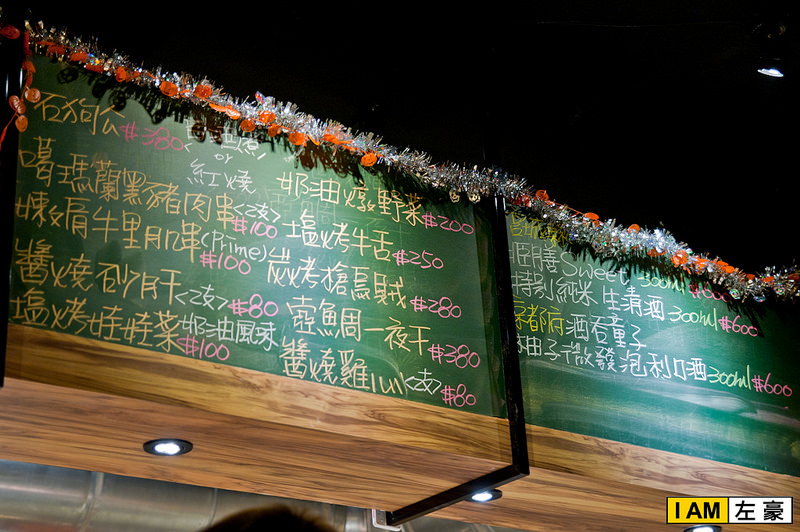 石狗公#380 <
or
紅燒
噶瑪蘭黑豬肉串<2支>#100
嫩肩牛里肌串(Prime)#100
醬燒砂肝<2支>#80
塩烤娃娃菜 奶油風味#100
奶油燉野菜#200
塩烤牛舌#250
炭烤槍烏賊#280
壺鯛一夜干#380
醬燒雞心<2支>#80
Sweet 300ml
特別純米生清酒 300ml #600
京都府 酒吞童子
柚子微發泡利口酒 300ml #600
I AM 左豪